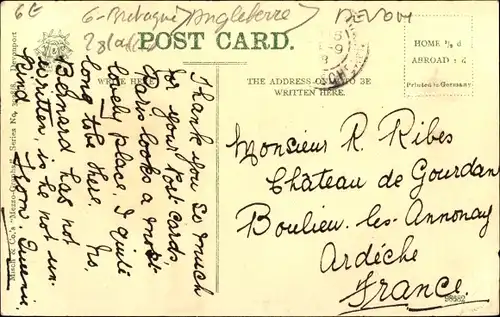 6E
G-Bretagne (Angleterre)
DEVON
POST CARD.
HOME ½ d
ABROAD 1 d
Printed in Germany
WRITE HERE
THE ADDRESS ONLY TO BE
WRITTEN HERE.
Thank you so much
for your Post Cards
Paris looks a most
lovely place, I quite
long to be there. Ms.
Bernard has not
written, is he not un-
kind
From
Monsieur R. Ribes
Château de Gourdan
Boulieu-les-Annonay
Ardèche
France.
Misch & Co.'s "Mezzo-Graphs" Series No.
Davenport